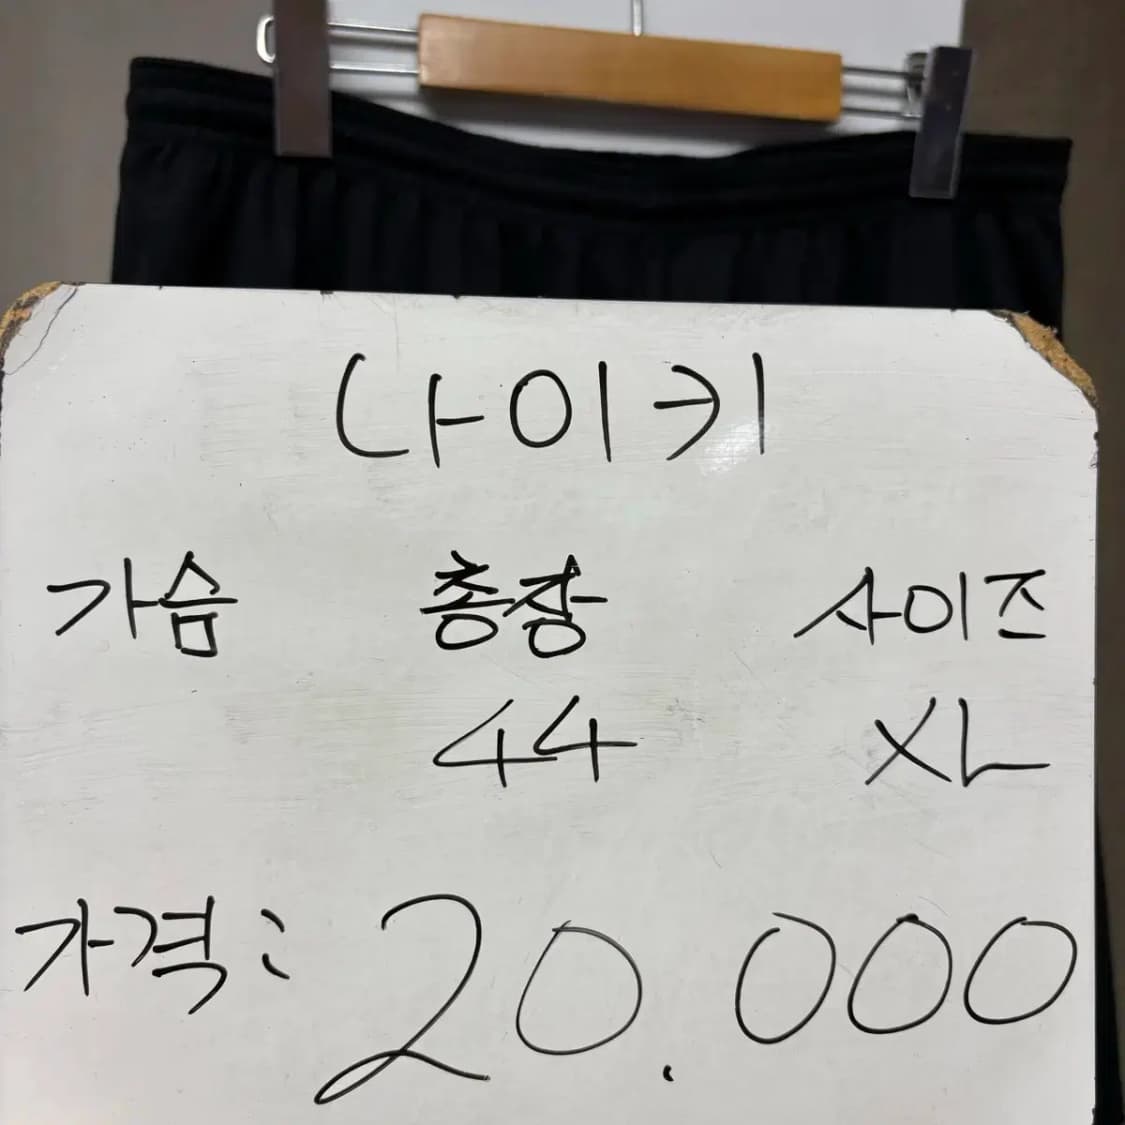 나이키
가슴 총장 사이즈
44 XL
가격: 20.000